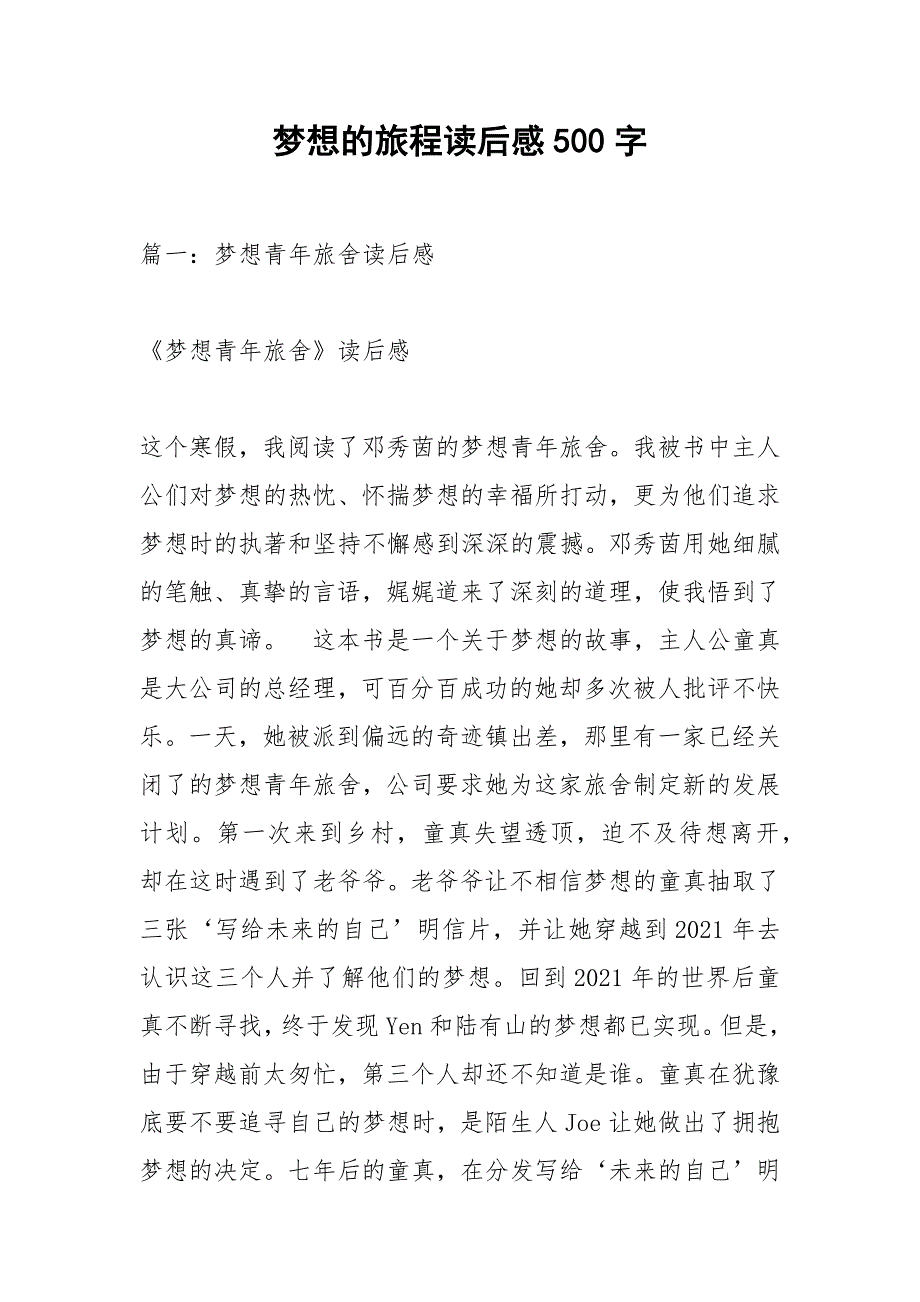 梦想的旅程读后感500字
篇一：梦想青年旅舍读后感
《梦想青年旅舍》读后感
这个寒假，我阅读了邓秀茵的梦想青年旅舍。我被书中主人
公们对梦想的热忱、怀揣梦想的幸福所打动，更为他们追求
梦想时的执著和坚持不懈感到深深的震撼。邓秀茵用她细腻
的笔触、真挚的言语，娓娓道来了深刻的道理，使我悟到了
梦想的真谛。　这本书是一个关于梦想的故事，主人公童真
是大公司的总经理，可百分百成功的她却多次被人批评不快
乐。一天，她被派到偏远的奇迹镇出差，那里有一家已经关
闭了的梦想青年旅舍，公司要求她为这家旅舍制定新的发展
计划。第一次来到乡村，童真失望透顶，迫不及待想离开，
却在这时遇到了老爷爷。老爷爷让不相信梦想的童真抽取了
三张‘写给未来的自己’明信片，并让她穿越到2021年去
认识这三个人并了解他们的梦想。回到2021年的世界后童
真不断寻找，终于发现Yen和陆有山的梦想都已实现。但是，
由于穿越前太匆忙，第三个人却还不知道是谁。童真在犹豫
底要不要追寻自己的梦想时，是陌生人Joe让她做出了拥抱
梦想的决定。七年后的童真，在分发写给‘未来的自己’明